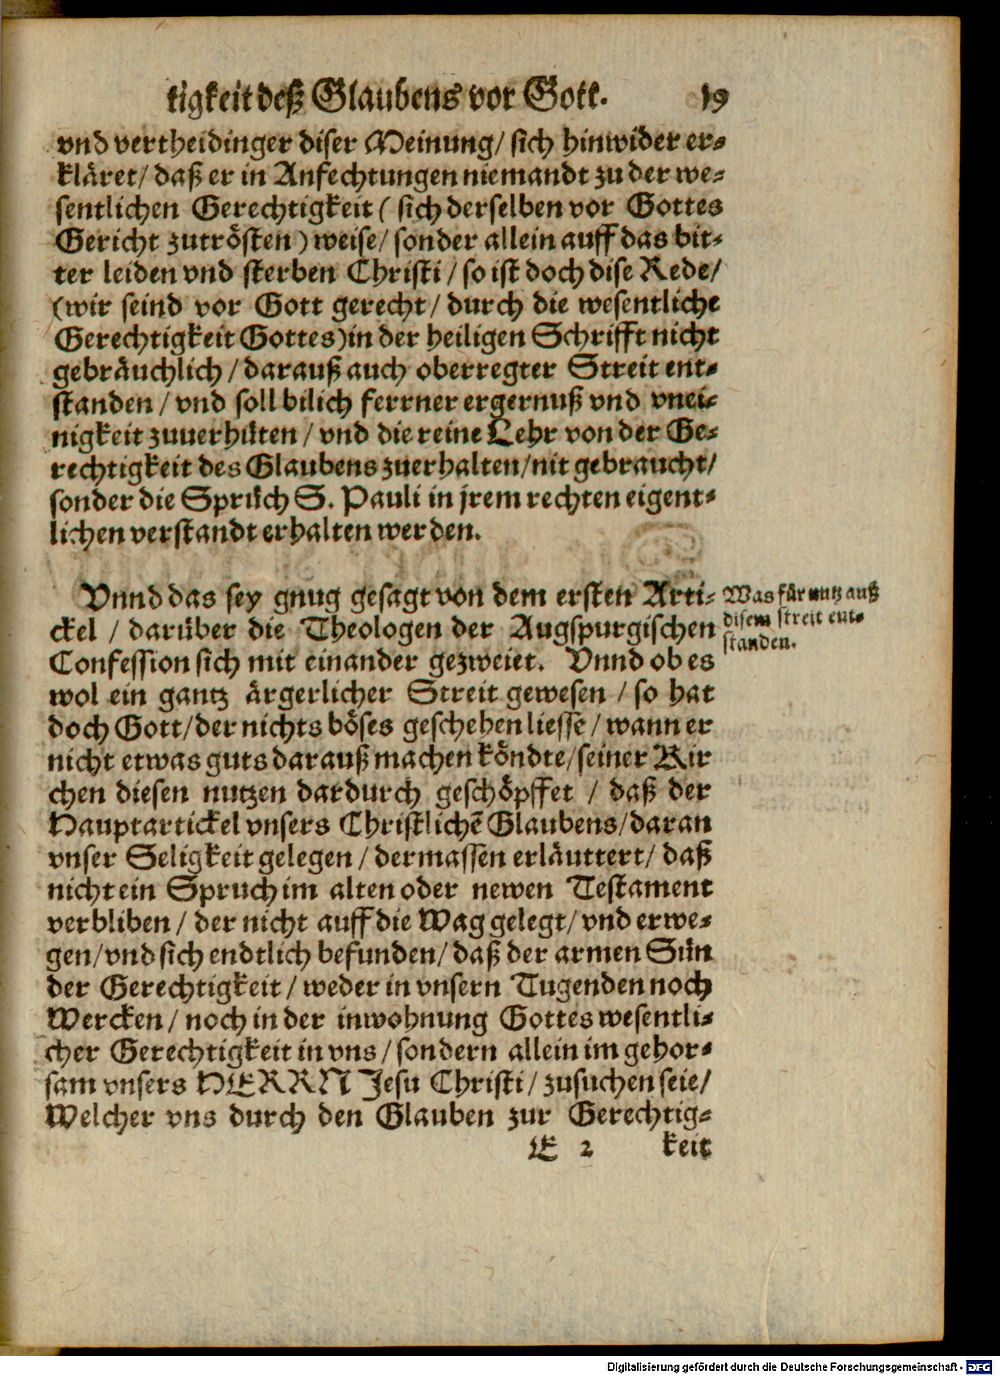 tigkeit deß Glaubens vor Gott. 19
vnd vertheidinger diser Meinung/ sich hinwider er-
kläret/ daß er in Anfechtungen niemandt zu der we-
sentlichen Gerechtigkeit ( sich derselben vor Gottes
Gericht zutrösten ) weise/ sonder allein auff das bit-
ter leiden vnd sterben Christi / so ist doch dise Rede/
(wir seind vor Gott gerecht/ durch die wesentliche
Gerechtigkeit Gottes)in der heiligen Schrifft nicht
gebräuchlich / darauß auch oberregter Streit ent-
standen / vnd soll bilich ferrner ergernuß vnd vnei-
nigkeit zuuerhüten / vnd die reine Lehr von der Ge-
rechtigkeit des Glaubens zuerhalten/nit gebraucht/
sonder die Sprüch S. Pauli in jrem rechten eigent-
lichen verstandt erhalten werden.
Vnnd das sey gnug gesagt von dem ersten Arti-
ckel / darüber die Theologen der Augspurgischen
Confession sich mit einander gezweiet. Vnnd ob es
wol ein gantz ärgerlicher Streit gewesen / so hat
doch Gott/ der nichts böses geschehen liesse / wann er
nicht etwas guts darauß machen köndte/ seiner Kir
chen diesen nutzen dardurch geschöpffet / daß der
Hauptartickel vnsers Christlichẽ Glaubens/ daran
vnser Seligkeit gelegen / dermassen erläuttert/ daß
nicht ein Spruch im alten oder newen Testament
verbliben / der nicht auff die Wag gelegt/ vnd erwe-
gen/ vnd sich endtlich befunden/ daß der armen Sün
der Gerechtigkeit / weder in vnsern Tugenden noch
Wercken / noch in der inwohnung Gottes wesentli-
cher Gerechtigkeit in vns / sondern allein im gehor-
sam vnsers HERRN Jesu Christi / zusuchen seie/
Welcher vns durch den Glauben zur Gerechtig-
E 2 keit
Was für nutz auß
disem streit ent-
standen.
Digitalisierung gefördert durch die Deutsche Forschungsgemeinschaft - DFG